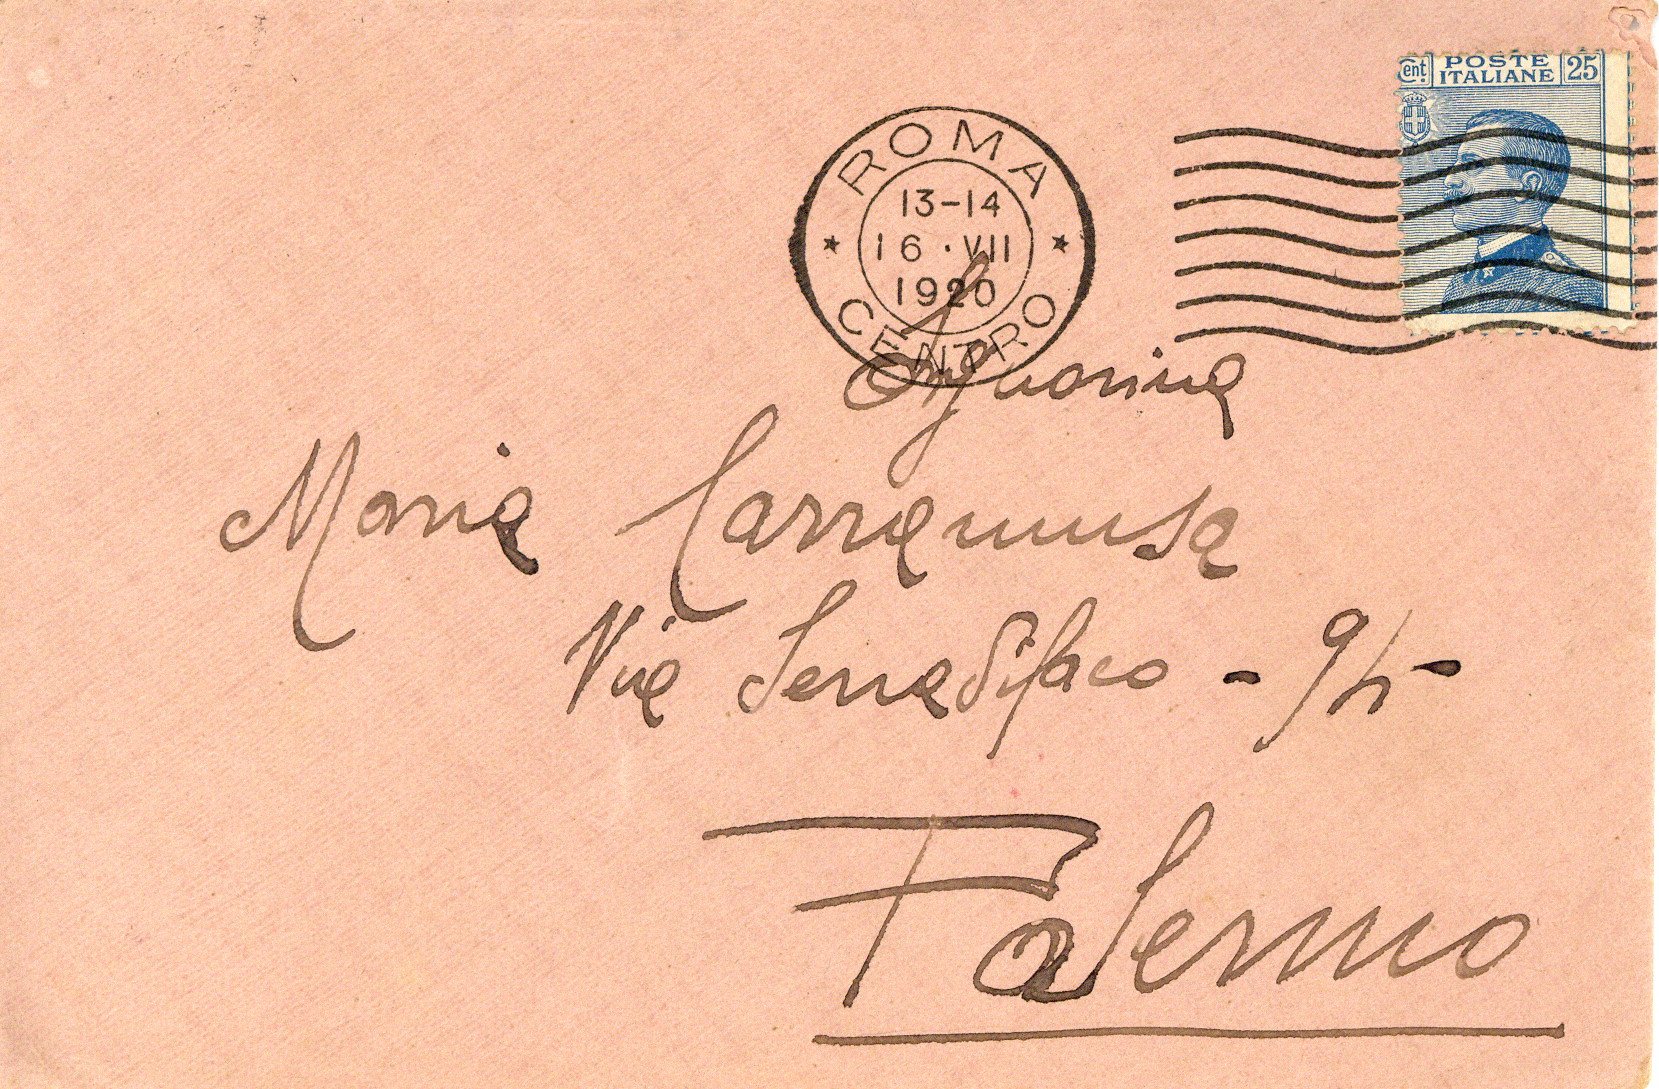 Cent. POSTE ITALIANE 25
ROMA
13-14
16·VII
1920
CENTRO
Signorina
Maria Carramusa
Via Serradifalco - 95 -
Palermo